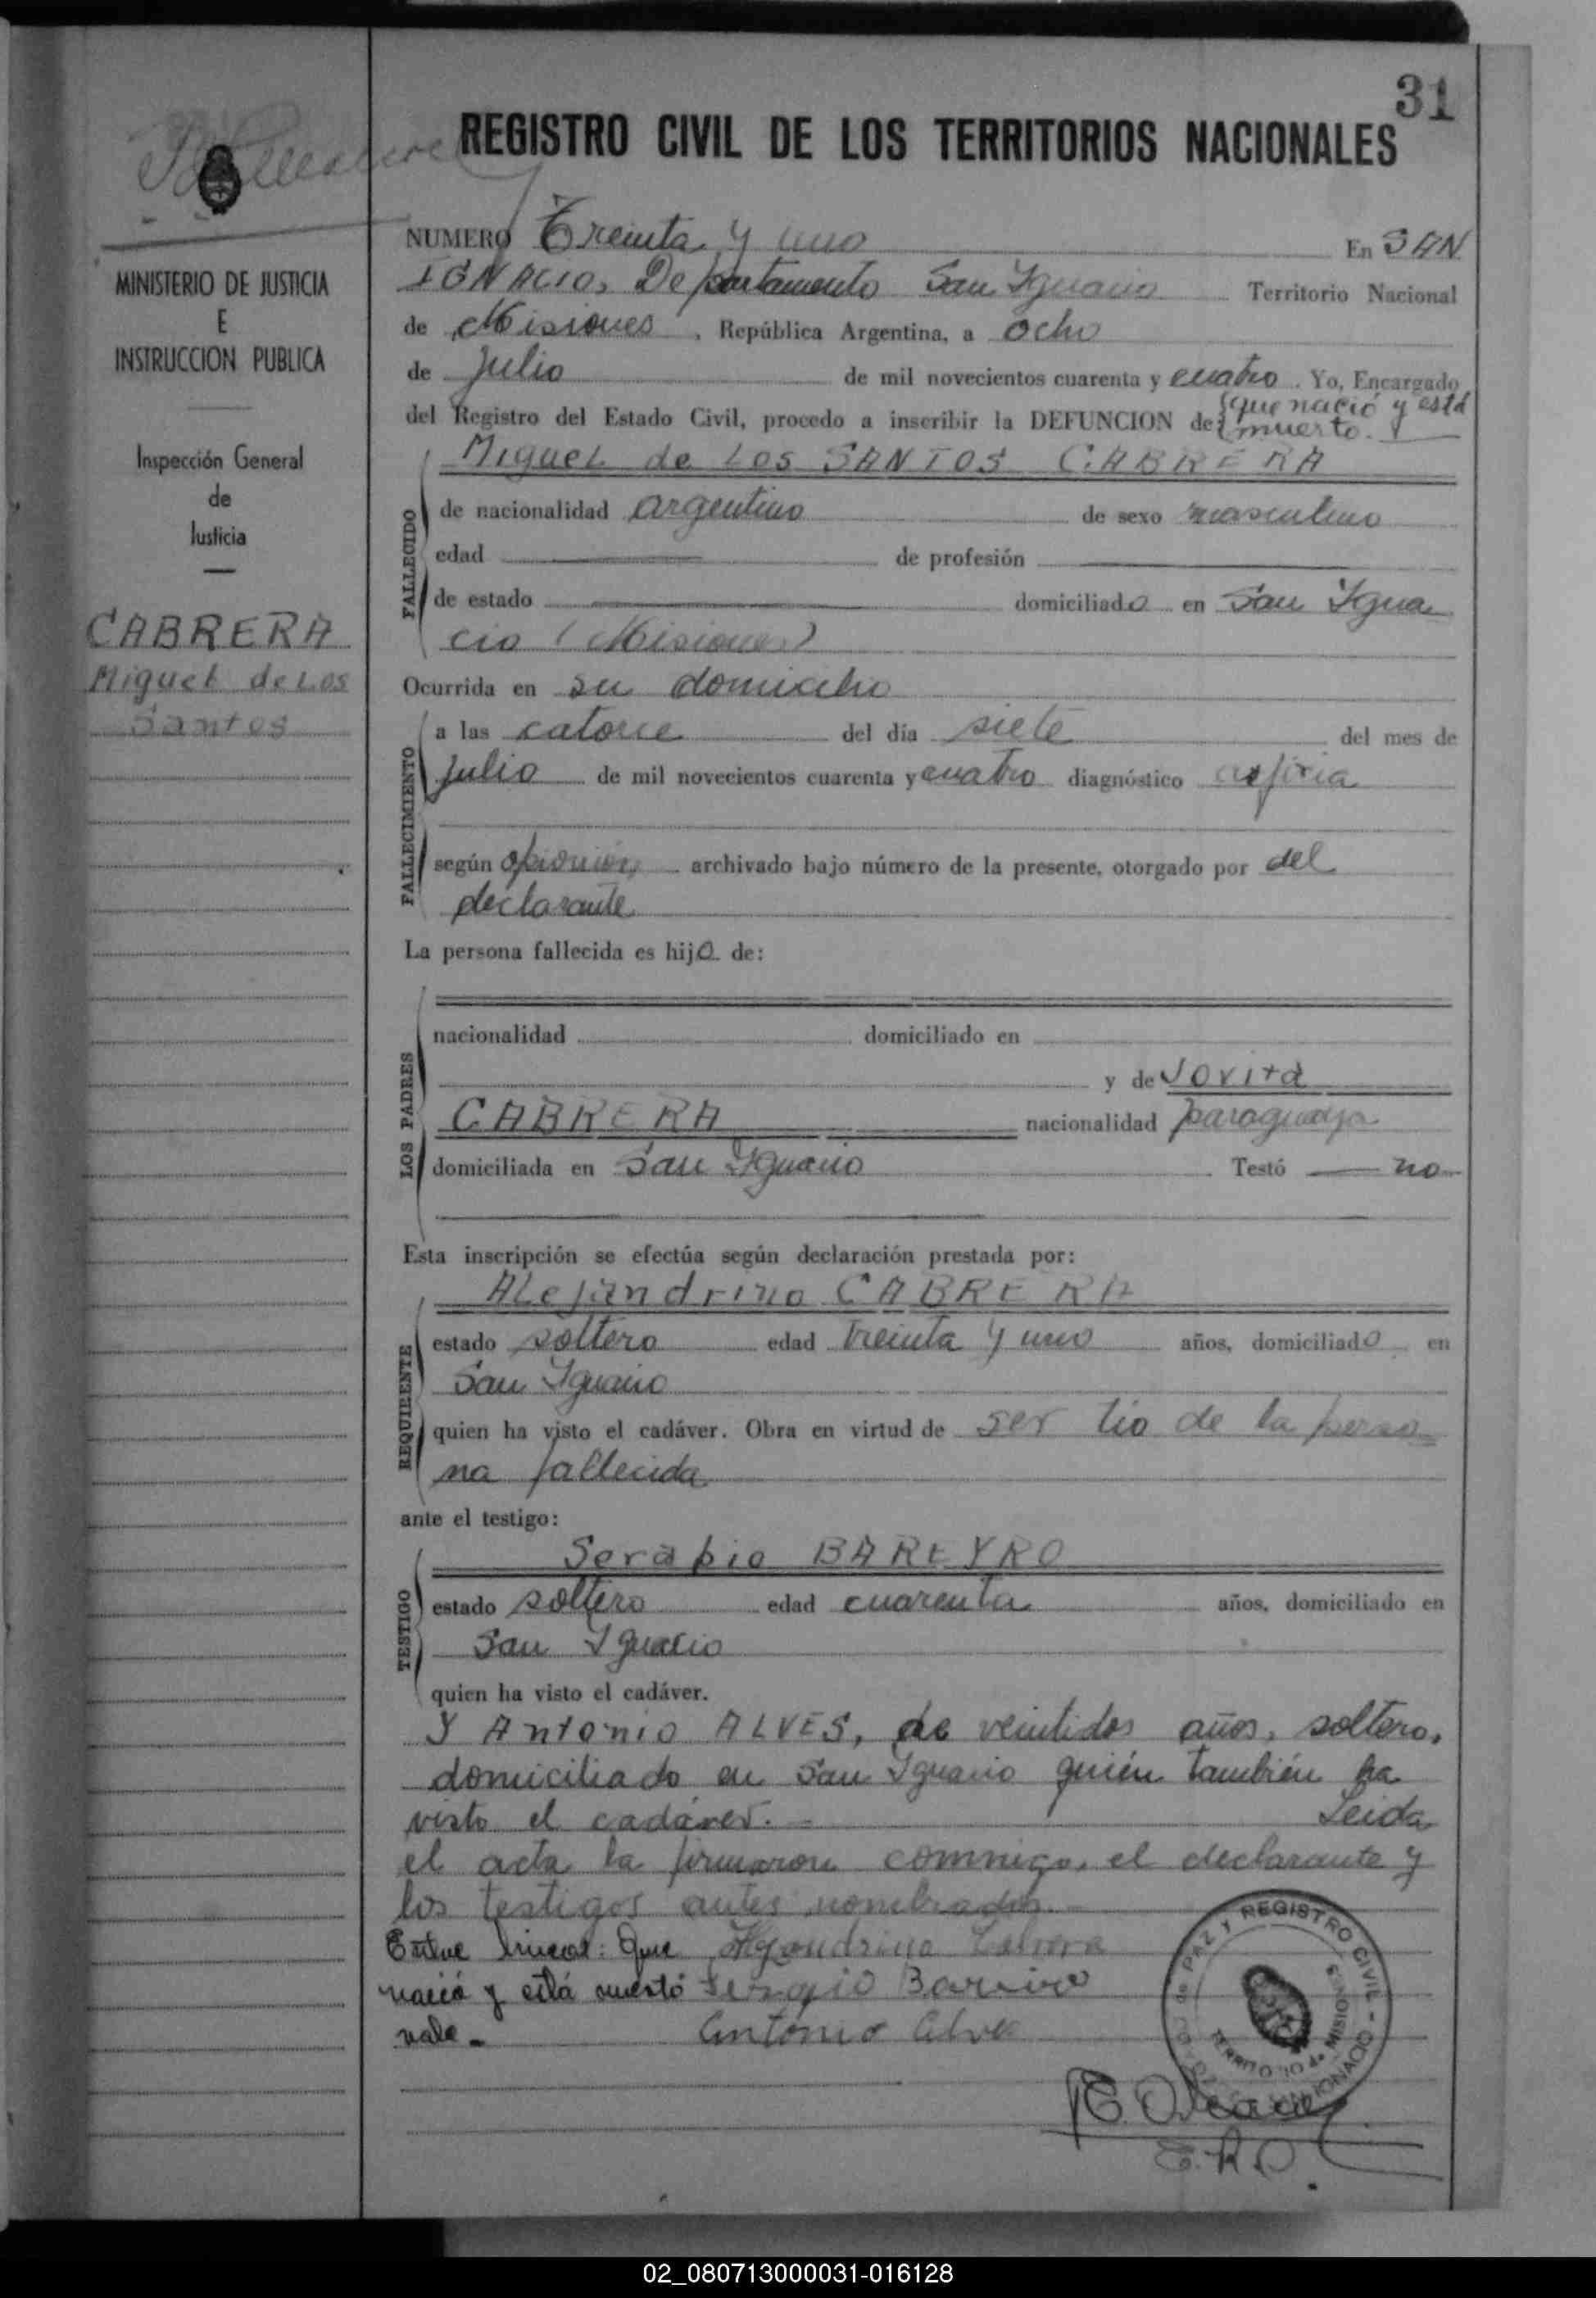 31
REGISTRO CIVIL DE LOS TERRITORIOS NACIONALES
MINISTERIO DE JUSTICIA
E
INSTRUCCION PUBLICA
Inspección General
de
Justicia
CABRERA
Miguel de Los
Santos
NUMERO Treinta y uno En SAN
IGNACIO, Departamento San Ignacio Territorio Nacional
de Misiones, República Argentina, a ocho
de Julio de mil novecientos cuarenta y cuatro. Yo, Encargado
que nació y está
del Registro del Estado Civil, procedo a inscribir la DEFUNCION de muerto.
Miguel de Los SANTOS CABRERA
FALLECIDO
de nacionalidad argentino de sexo masculino
edad de profesión
de estado domiciliado en San Igna
cio (Misiones)
Ocurrida en su domicilio
FALLECIMIENTO
a las catorce del día siete del mes de
Julio de mil novecientos cuarenta y cuatro diagnóstico asfixia
según opinión archivado bajo número de la presente, otorgado por del
declarante
La persona fallecida es hijo de:
LOS PADRES
nacionalidad domiciliado en
y de Jovita
CABRERA nacionalidad paraguaya
domiciliada en San Ignacio Testó no
Esta inscripción se efectúa según declaración prestada por:
REQUIRENTE
Alejandrino CABRERA
estado soltero edad treinta y uno años, domiciliado en
San Ignacio
quien ha visto el cadáver. Obra en virtud de ser tio de la perso=
na fallecida
ante el testigo:
TESTIGO
Serapio BAREYRO
estado soltero edad cuarenta años, domiciliado en
San Ignacio
quien ha visto el cadáver.
Y Antonio ALVES, de veintidos años, soltero,
domiciliado en San Ignacio quién también ha
visto el cadáver.= Leida
el acta la firmaron commigo, el declarante y
los testigos antes nombrados.=
Entre lineas: Que
nació y está muerto
vale.=
Antonio Alve
PAZ Y REGISTRO CIVIL - SAN IGNACIO
TERRITORIO de MISIONES
E.R.C.
02_080713000031-016128